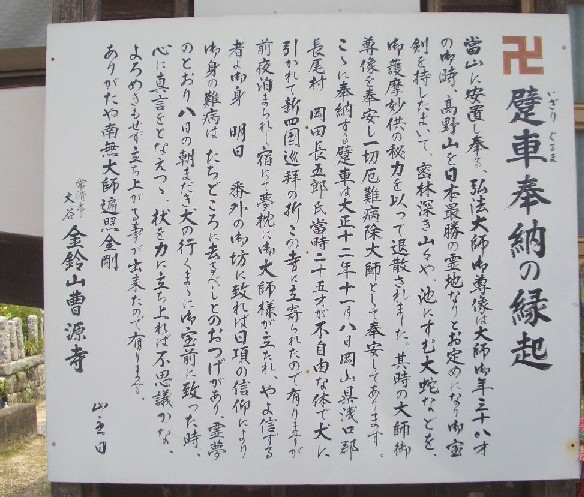 卍 躄車奉納の縁起
いざりぐるま
當山に安置し奉る、弘法大師御尊像は大師御年三十八才
の御時、高野山を日本最勝の霊地なりとお定めになり御宝
剣を持したまいて、密林深き山々や池にすむ大蛇などを
御護摩妙供の秘力を以って退散されました。其時の大師御
尊像を奉安し一切厄難病除大師として奉安してあります。
こゝに奉納する躄車は大正十二年十一月八日岡山県浅口郡
長尾村 岡田長五郎氏当時二十五才が不自由な体で犬に
引かれて新四国巡拝の折この寺に立寄られたので有りますが
前夜泊まられし宿にて夢枕に御大師様が立たれ、やよ信する
者よ御身 明日 番外の御坊に致れば日頃の信仰により
御身の難病は たちどころに去るべしとのおつげがあり霊夢
のとおり八日の朝まだき犬の行くまゝに御宝前に致った時
心に真言をとなえつゝ、杖を力に立ち上れば不思議かな、
よろめきもせず立ち上がる事が出来たので有ります。
ありがたや南無大師遍照金剛
常滑市
大谷 金鈴山曹源寺
山主曰